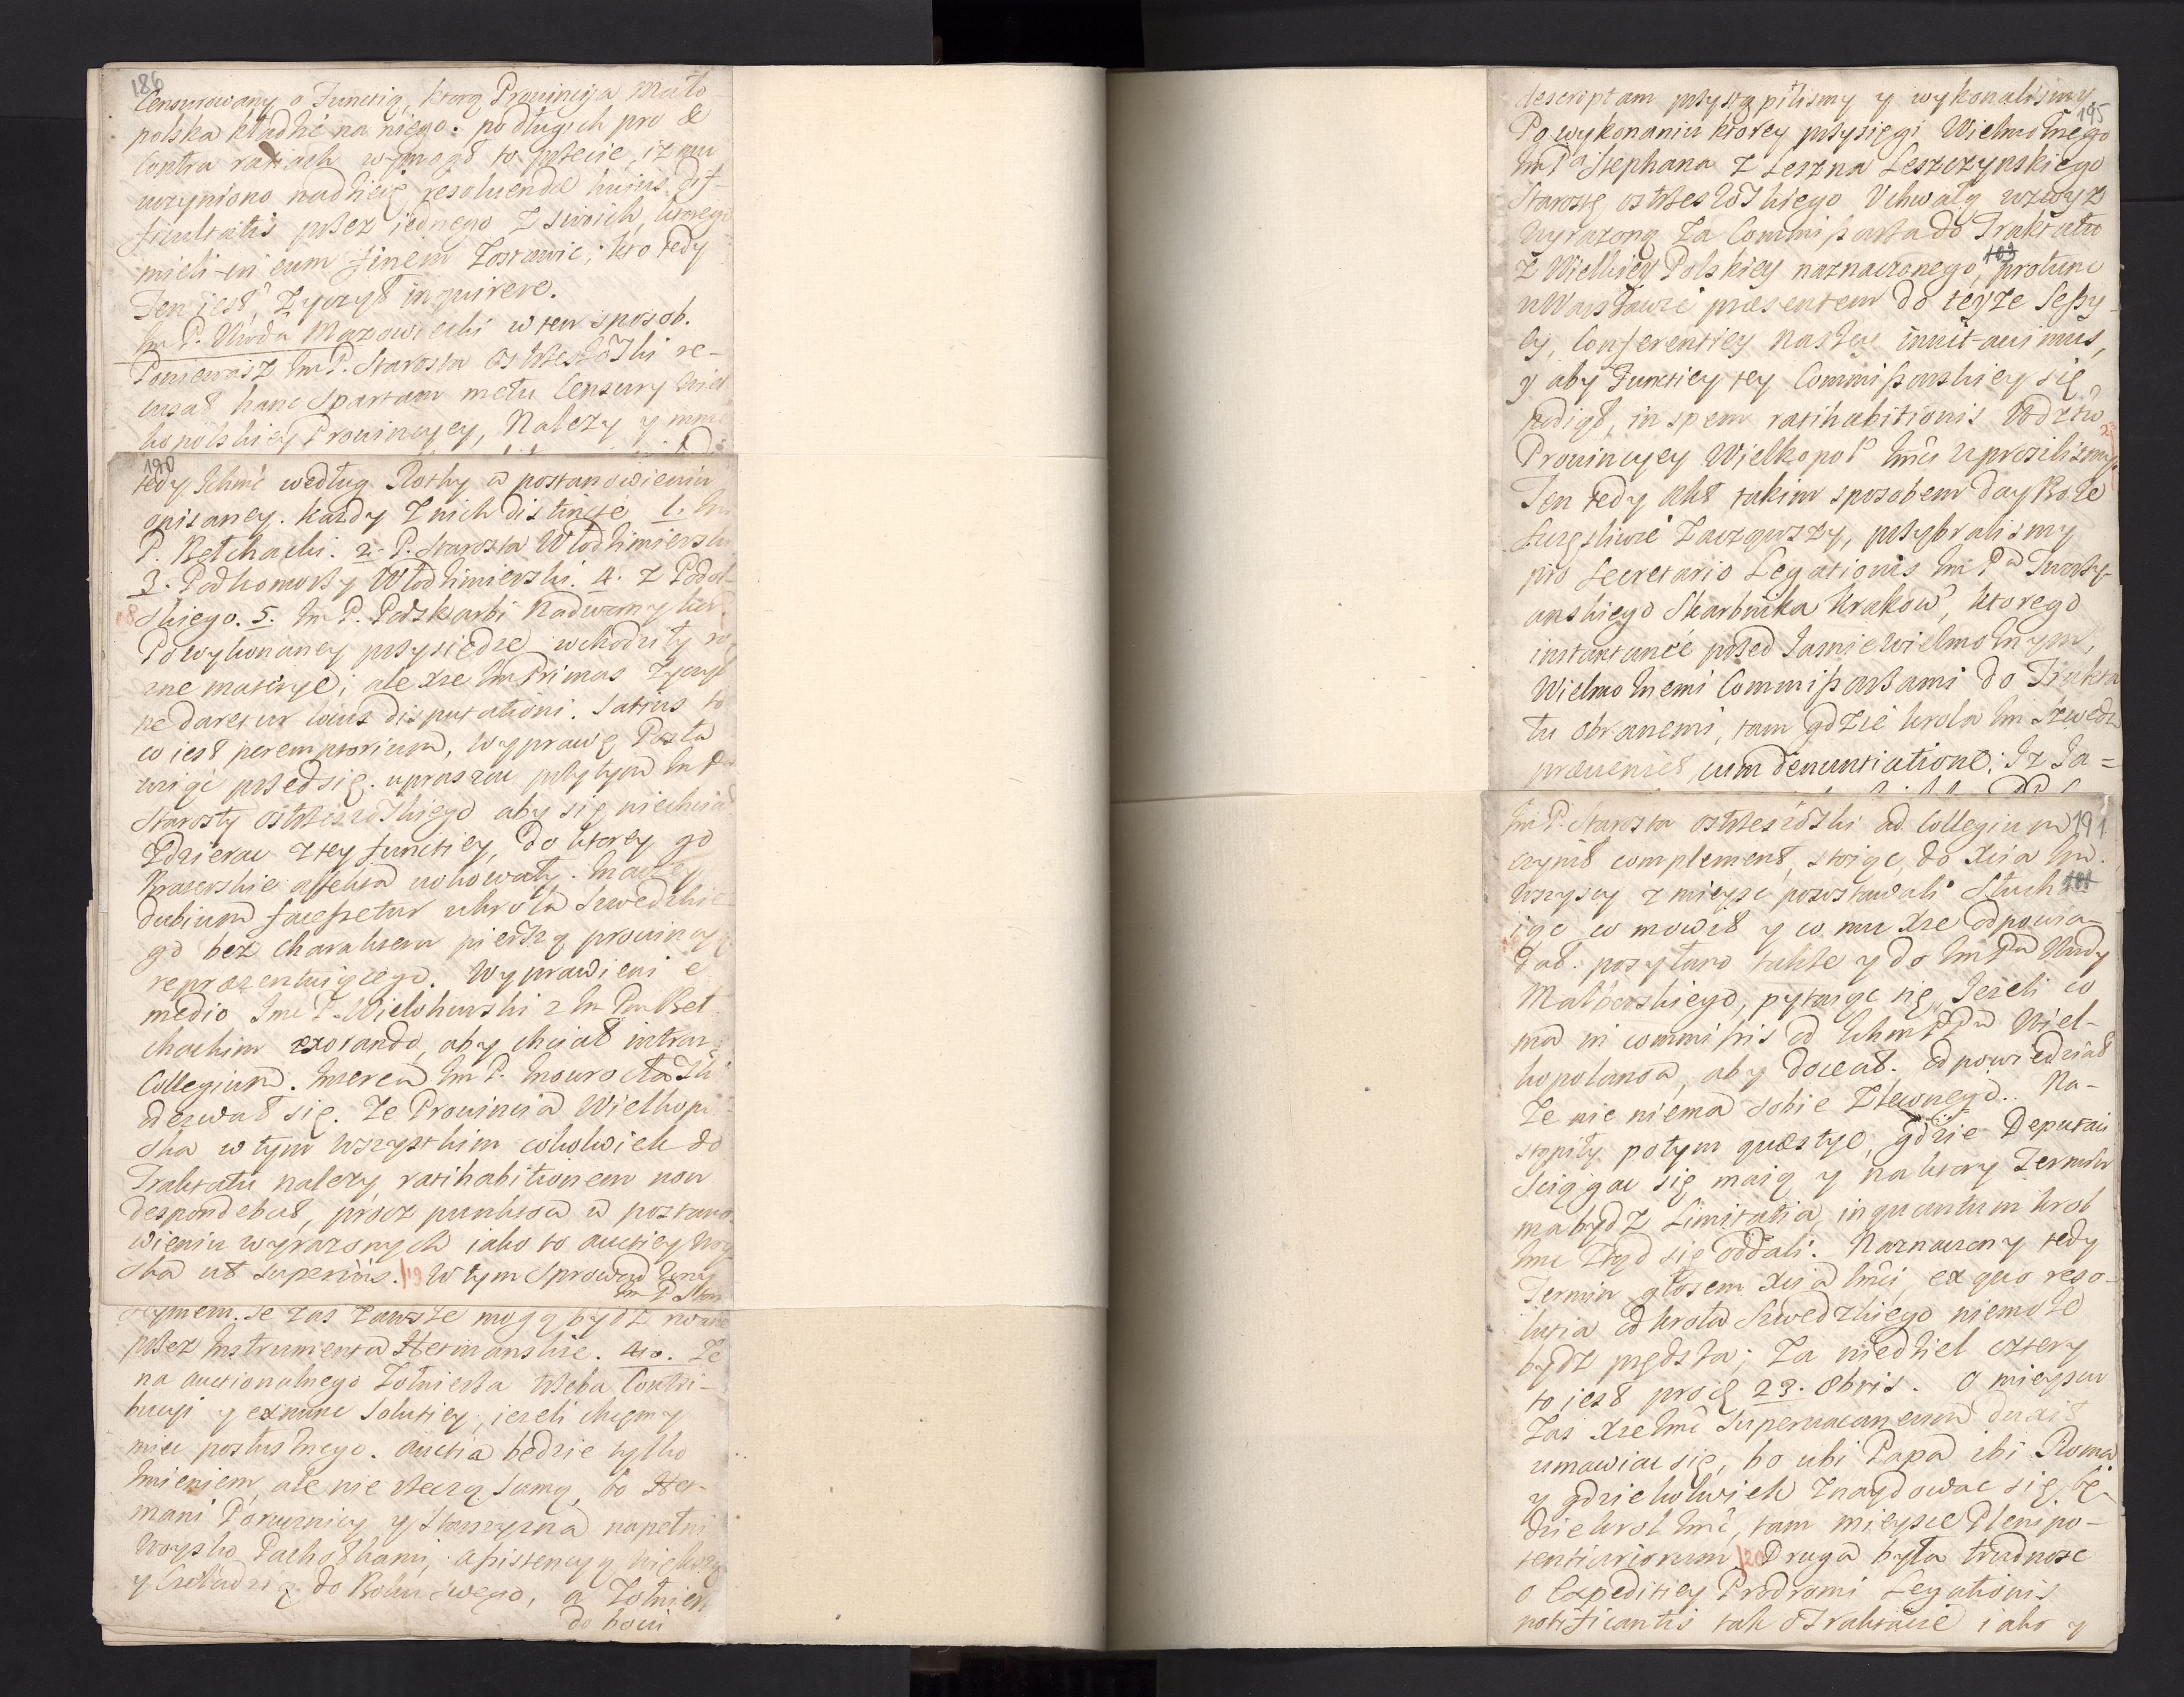 186
Censurowany o Functią, ktorą Prowincyja Mało
polska kładzie na niego. po długich pro &
Contra ratiach wymogł to przecie, iż mu
uczyniono nadzieię resoluendae huius dif-
ficultatis przez iednego z swoich, ktorego
mieli in eum finem Zostawic; kto tedy
Ten iest, Zyczył inquirere.
Im P. Woda Mazowiecki w ten sposob.
Poniewasz Im P. Starosta Ostrzeszowski re-
cusat hanc Spartam metu Censury Wiel
kopolskiey Prowincyey, Należy y mnie
190
tedy Ichmć według Rothy w postanowieniu
opisaney. każdy z nich distincte 1. Im
P. Bełchacki. 2. P. Starosta Włodzimierski
3. Podkomorzy Włodzimierski. 4. z Podol-
skiego. 5. Im P. Podskarbi Nadworny kor.
Po wykonaney przysiędze wchodziły ro-
zne materye; ale Xże Im Primas Zyczył
ne daretur locus disputationi. Satius to
co iest peremptorium, wyprawę Posła
wziąć przed się. upraszaw przytym Im Pa
Starosty Ostrzeszowskiego aby się niechciał
Zdzierac z tey functiey, do ktorey go
Braterskie affekta wokowały. Inaczey
dubium facesseretur u krola Szwedzkie-
go bez charakteru pierszą prowincyą
repraezentuiącego. Wyprawieni e
medio Imc P. Wielohurski z Im Pm Beł
chackim exorando, aby chciał intrare
Collegium. Interea Im P. Inowrocławski
ozwał się. Ze Prowincia Wielkopol-
ska w tym wszystkim cokolwiek do
Traktatu nalezy, ratihabitionem non
despondebat, procz punktow w postano-
wieniu wyrazonych iako to auctiey woy
ska ut superius. 19 W tym Sprowadzony
Im P. Star
czymem. Te zas zawsze mogą bydz rowne
przez Instrumenta Hetmanskie. 4to. Ze
na auctionalnego Zołnierza trzeba Contri-
bucyi y ex nunc Solutiey, ieżeli chcemy
miec posłusznego. Auctia będzie tylko
Imieniem, ale nie rzeczą samą, bo Het-
mani Porucznicy y Starszyzna napełni
Woysko Pachołkami, Assistencyą większą
y Czeladzią do Boku swego, a Zołnierz
do boiu
descriptam przystąpilismy y wykonalismy
195
Po wykonaniu ktorey przysięgi Wielmożnego
Im Pa Stephana z Leszna Leszczynskiego
Starostę Ostrzeszowskiego Uchwałą wzwyz
wyrazoną Za Commissarza do Traktatu
103
z Wielkiey Polskiey naznaczonego, protunc
w Warszawie praesentem do teyże Sessy-
ey, Conferentiey naszey inuitauimus,
y aby Functiey tey Commissarskiey się
podiął, in spem ratihabitionis Wodztw
Prowincyey Wielkopol Imci uprosilismy
Ten tedy Akt takim sposobem day Boże
szczęśliwie Zacząwszy, przybralismy
pro Secretario Legationis Im Pa Tworzy-
anskiego Skarbnika Krakow, ktorego
instantanée przed Jasnie Wielmożnymi,
Wielmożnemi Commissarzami do Trakta
tu obranemi, tam gdzie krola Im Szwedz
praeueniet, cum denuntiatione: Iz Ja=
Im P. Starosta Ostrzeszowski ad Collegium
191
czynił complement, stoiąc, do Xcia Im.
wszyscy z mieysc powstawali słucha-
101
iąc co mowił y co mu Xże odpowia-
dał. posyłano także y do Im Pa Wody
Malborskiego, pytaiąc się, Jeżeli co
ma in commissis od Ichm PPw Wiel-
kopolanow, aby docat. odpowiedział
Ze nic niema sobie Zleconego. Na-
stąpiły potym quaestye, gdzie Deputaci
sciągac się maią y na ktory Termin
ma bydz Limitatia, inquantum krol
Imc Ztąd się oddali. Naznaczony tedy
Termin głosem Xcia Imci, ex quo reso-
lutia od krola Szwedzkiego niemoże
bydz prędsza; Za niedziel cztery
to iest pro die 23. 8bris. O mieyscu
Zas Xże Imc Superuacaneum duxit
umawiac się, bo ubi Papa ibi Roma
y gdziekolwiek Znaydowac się bę-
dzie krol Imć, tam mieysce Plenipo-
tentiariorum. 20 Druga była trudnosc
o Expeditiey Prodromi Legationis
notificantis tak o Traktacie iako y